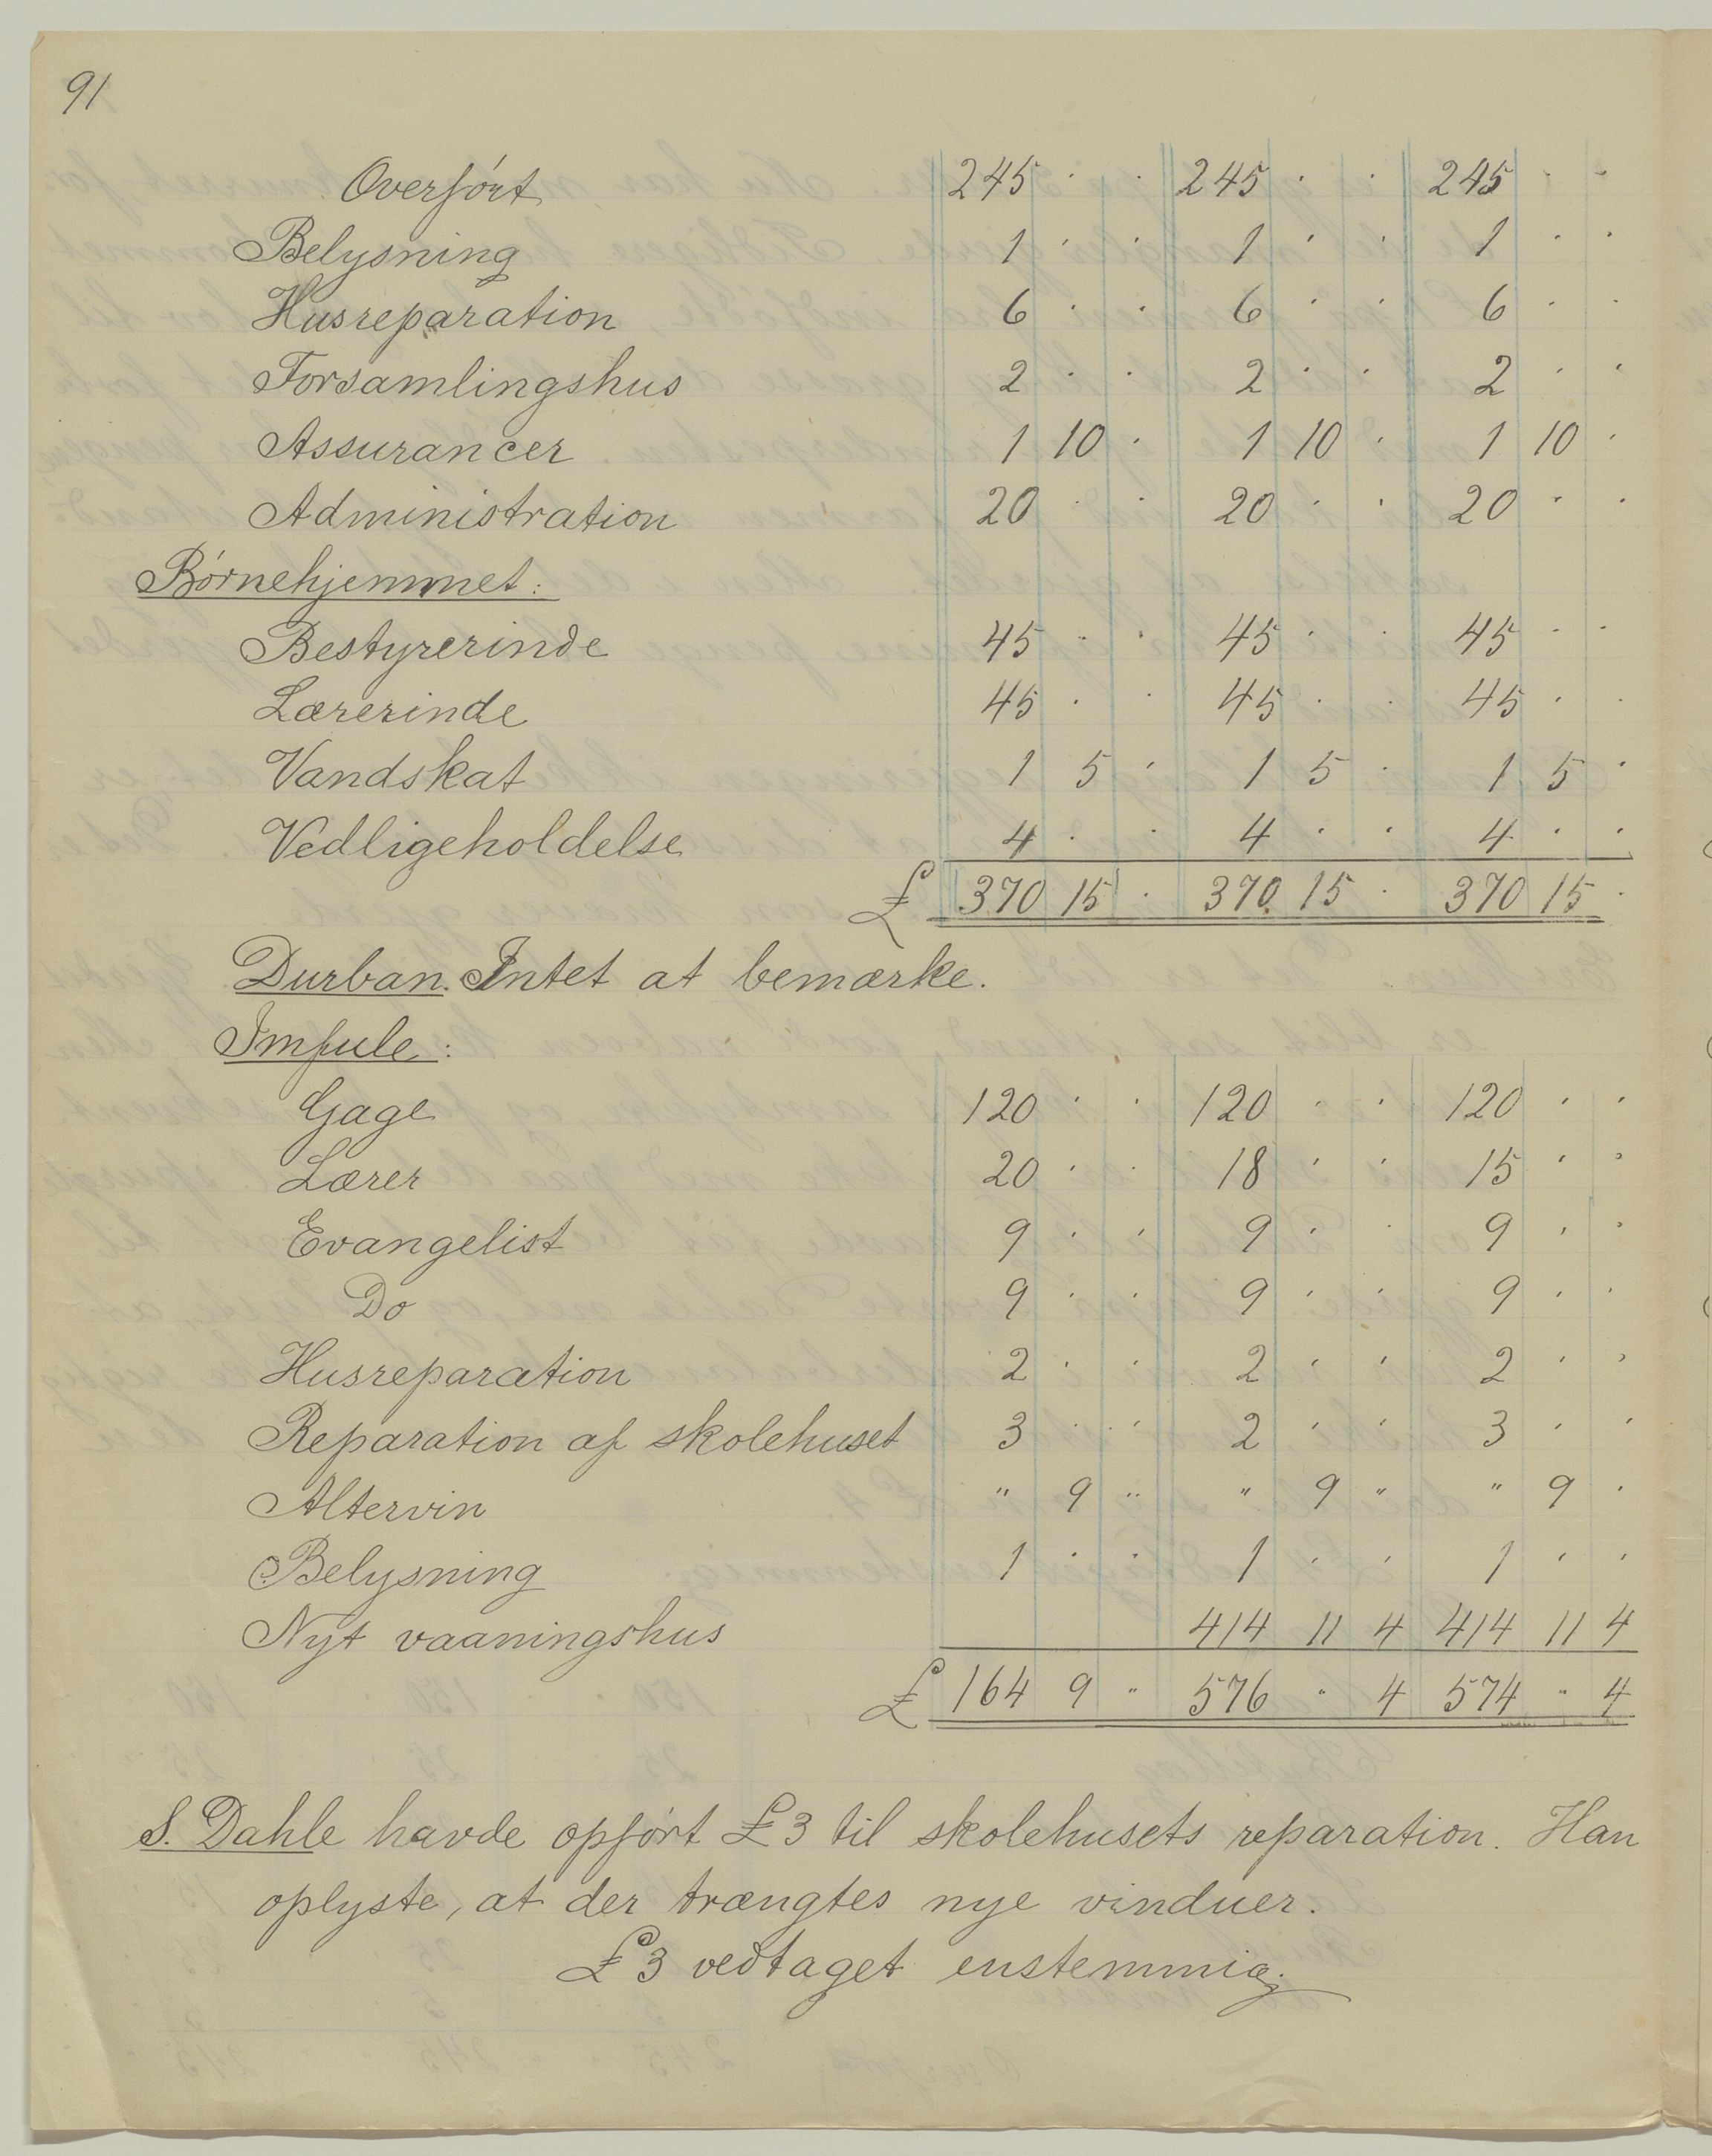 91
Overført 245 . . 245 . . 245 . .
Belysning 1 . . 1 . . 1 . .
Husreparation 6 . . 6 . . 6 . .
Forsamlingshus 2 . . 2 . . 2 . .
Assurancer 1 10 . 1 10 . 1 10 .
Administration 20 . . 20 . . 20 . .
Børnehjemmet:
Bestyrerinde 45 . . 45 . . 45 . .
Lærerinde 45 . . 45 . . 45 . .
Vandskat 1 5 . 1 5 . 1 5 .
Vedligeholdelse 4 . . 4 . . 4 . .
£ 370 15 . 370 15 . 370 15 .
Durban. Intet at bemærke.
Imfule:
Gage 120 . . 120 . . 120 . .
Lærer 20 . . 18 . . 15 . .
Evangelist 9 . . 9 . . 9 . .
Do 9 . . 9 . . 9 . .
Husreparation 2 . . 2 . . 2 . .
Reparation af skolehuset 3 . . 2 . . 3 . .
Altervin " 9 " " 9 " " 9 .
Belysning 1 . . 1 . . 1 . .
Nyt vaaningshus 414 11 4 414 11 4
£ 164 9 " 576 " 4 574 " 4
S. Dahle havde opført £3 til skolehusets reparation. Han
oplyste, at der trængtes nye vinduer.
£3 vedtaget enstemmig.